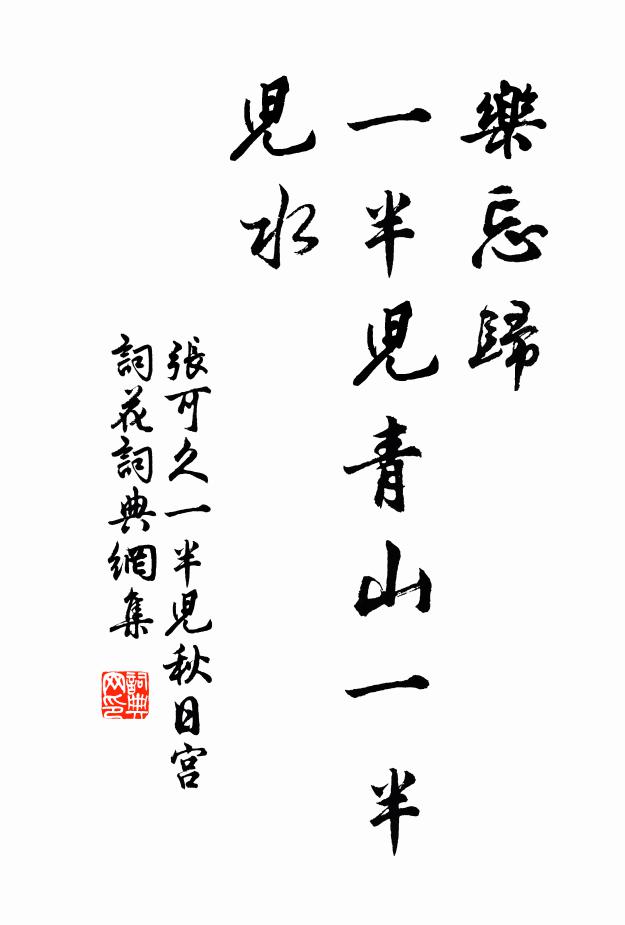 樂忘歸
一半児青山一半
児水
張可久一半児秋日宮
詞花詞典網集
詞典网印